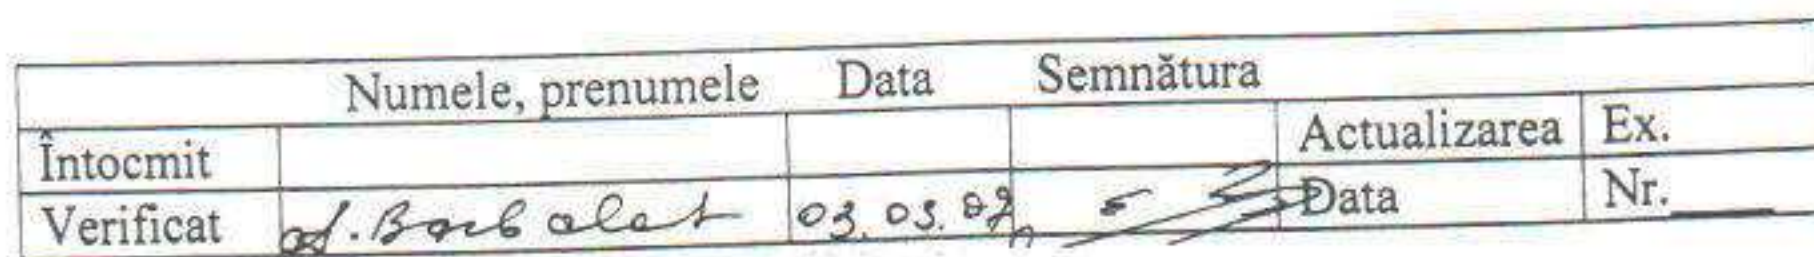 Numele, prenumele Data Semnătura
Întocmit Actualizarea Ex.
Verificat A. Barbalat 03.03.07 Data Nr.____